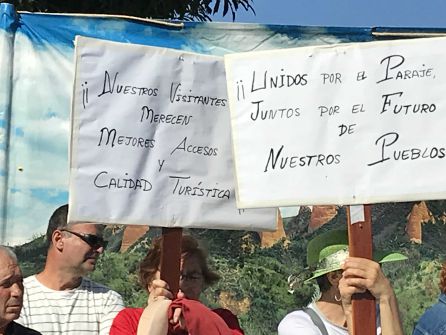 ¡¡ Nuestros Visitantes
Merecen
Mejores Accesos
y
Calidad Turística
¡¡ Unidos por el Paraje,
Juntos por el Futuro
de
Nuestros Pueblos